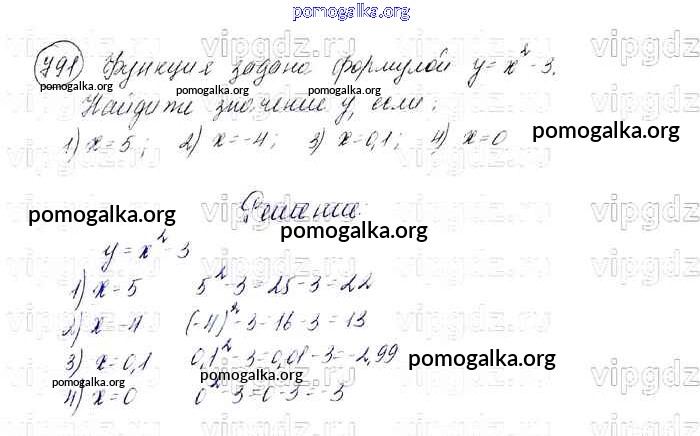 pomogalka.org
791 Функция задана формулой y = x² - 3.
pomogalka.org pomogalka.org pomogalka.org
Найдите значение y, если:
1) x = 5; 2) x = -4; 3) x = 0,1; 4) x = 0.
pomogalka.org
Решение:
pomogalka.org
pomogalka.org
y = x² - 3
1) x = 5 5² - 3 = 25 - 3 = 22
2) x = -4 (-4)² - 3 = 16 - 3 = 13
3) x = 0,1 0,1² - 3 = 0,01 - 3 = -2,99
pomogalka.org
pomogalka.org pomogalka.org
4) x = 0 0² - 3 = 0 - 3 = -3
vipgdz